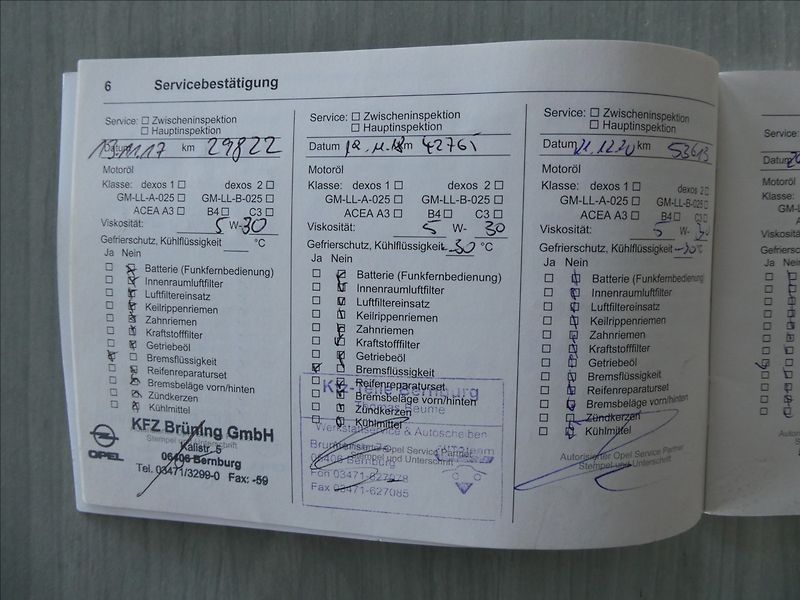 6 Servicebestätigung
Service: ☐ Zwischeninspektion
☐ Hauptinspektion
Datum 13.11.17 km 29822
Motoröl
Klasse: dexos 1 ☐ dexos 2 ☐
GM-LL-A-025 ☐ GM-LL-B-025 ☐
ACEA A3 ☐ B4 ☐ C3 ☐
Viskosität: 5 W-30
Gefrierschutz, Kühlflüssigkeit °C
Ja Nein
Batterie (Funkfernbedienung)
Innenraumluftfilter
Luftfiltereinsatz
Keilrippenriemen
Zahnriemen
Kraftstofffilter
Getriebeöl
Bremsflüssigkeit
Reifenreparaturset
Bremsbeläge vorn/hinten
Zündkerzen
Kühlmittel
OPEL
KFZ Brüning GmbH
Stempel und Unterschrift
Kalistr. 5
06406 Bernburg
Tel. 03471/3299-0 Fax: -59
Service: ☐ Zwischeninspektion
☐ Hauptinspektion
Datum km 42761
Motoröl
Klasse: dexos 1 ☐ dexos 2 ☐
GM-LL-A-025 ☐ GM-LL-B-025 ☐
ACEA A3 ☐ B4 ☐ C3 ☐
Viskosität: 5 W- 30
Gefrierschutz, Kühlflüssigkeit -30 °C
Ja Nein
Batterie (Funkfernbedienung)
Innenraumluftfilter
Luftfiltereinsatz
Keilrippenriemen
Zahnriemen
Kraftstofffilter
Getriebeöl
Bremsflüssigkeit
Reifenreparaturset
Bremsbeläge vorn/hinten
Zündkerzen
Kühlmittel
Bernburg
Werkstattservice & Autoscheiben
Autorisierter Opel Service Partner
Stempel und Unterschrift
06406 Bernburg
Fon 03471-627078
Fax 03471-627085
Service: ☐ Zwischeninspektion
☐ Hauptinspektion
Datum 21.12.20 km 53613
Motoröl
Klasse: dexos 1 ☐ dexos 2 ☐
GM-LL-A-025 ☐ GM-LL-B-025 ☐
ACEA A3 ☐ B4 ☐ C3 ☐
Viskosität: 5 W- 30
Gefrierschutz, Kühlflüssigkeit -30 °C
Ja Nein
Batterie (Funkfernbedienung)
Innenraumluftfilter
Luftfiltereinsatz
Keilrippenriemen
Zahnriemen
Kraftstofffilter
Getriebeöl
Bremsflüssigkeit
Reifenreparaturset
Bremsbeläge vorn/hinten
Zündkerzen
Kühlmittel
Autorisierter Opel Service Partner
Stempel und Unterschrift
Service:
Datum
Motoröl
Klasse:
GM-L
Viskosit
Gefriersc
Ja Nein